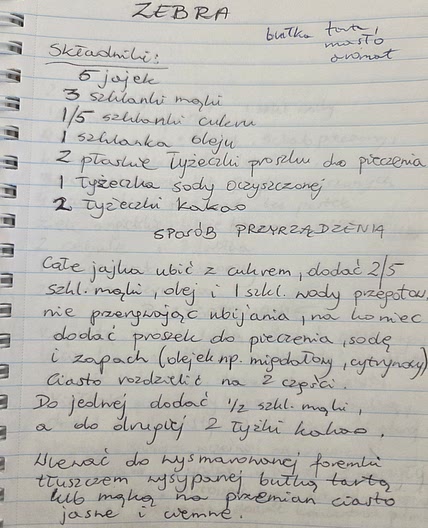 ZEBRA
bułka tarta
masło
aromat
Składniki:
5 jajek
3 szklanki mąki
1/5 szklanki cukru
1 szklanka oleju
2 płaskie łyżeczki proszku do pieczenia
1 łyżeczka sody oczyszczonej
2 łyżeczki kakao
SPOSÓB PRZYRZĄDZENIA
Całe jajka ubić z cukrem, dodać 2/5
szkl. mąki, olej i 1 szkl. wody przegotow.
nie przerywając ubijania, na koniec
dodać proszek do pieczenia, sodę
i zapach (olejek np. migdałowy, cytrynowy)
Ciasto rozdzielić na 2 części.
Do jednej dodać 1/2 szkl. mąki,
a do drugiej 2 łyżki kakao.
Wlewać do wysmarowanej foremki
tłuszczem wysypanej bułką tartą
lub mąką na przemian ciasto
jasne i ciemne.